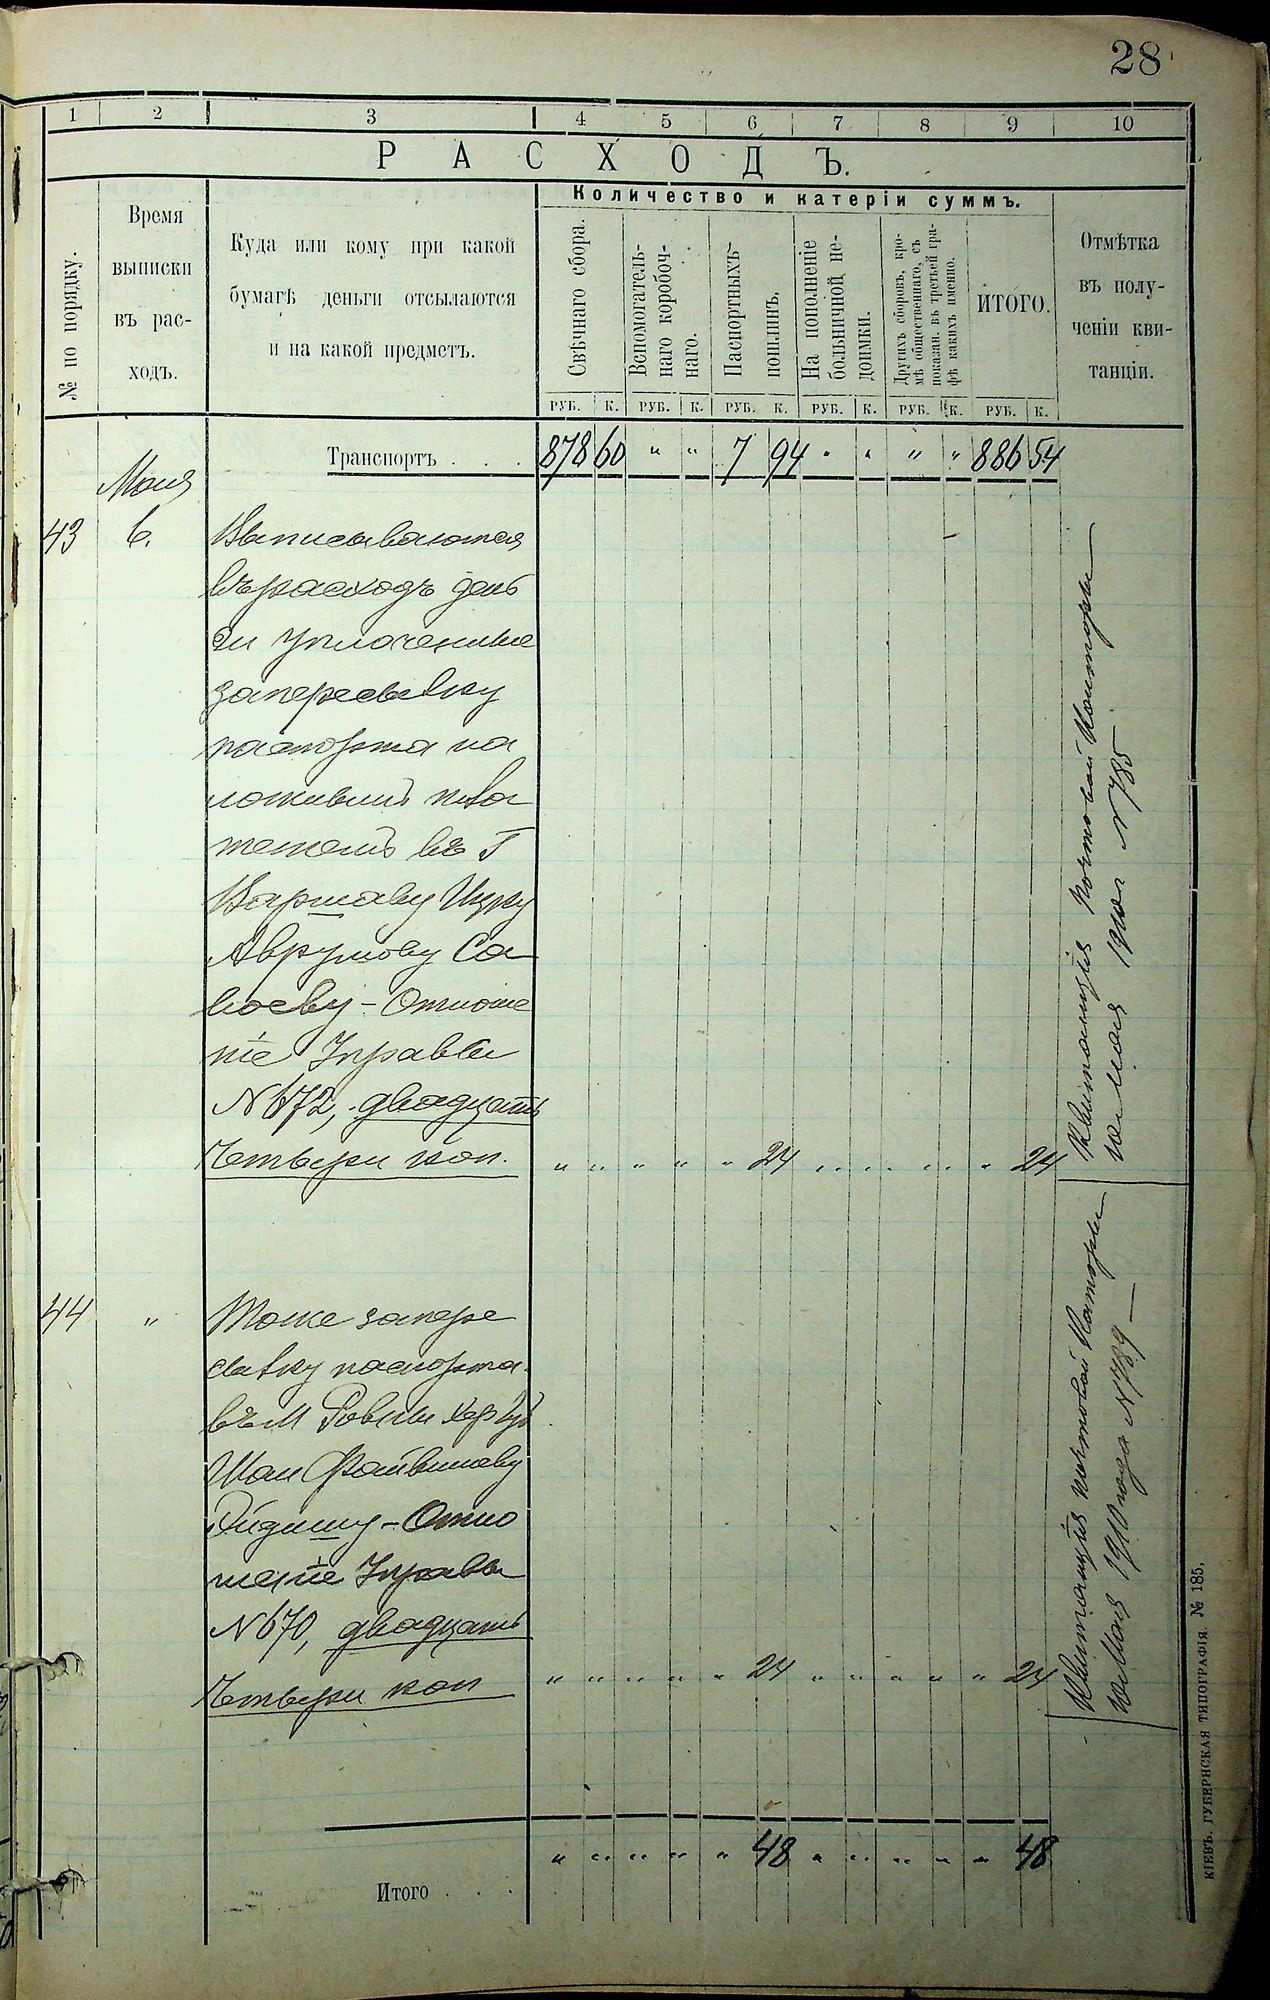 28
1 2 3 4 5 6 7 8 9 10
РАСХОДЪ.
№ по порядку.
Время
выписки
въ рас-
ходъ.
Куда или кому при какой
бумагѣ деньги отсылаются
и на какой предметъ.
Количество и катеріи суммъ.
Свѣчнаго сбора.
Вспомогатель-
наго коробоч-
наго.
Паспортныхъ
пошлинъ.
На пополненіе
больничной не-
доимки.
Другихъ сборовъ, кро-
мѣ общественнаго, съ
показан. въ третьей гра-
фѣ какихъ именно.
ИТОГО.
Отмѣтка
въ полу-
ченіи кви-
танціи.
РУБ. К. РУБ. К. РУБ. К. РУБ. К. РУБ. К. РУБ. К.
Транспортъ . . . 878 60 " " 7 94 " " " " 886 54
Мая
43 6. Выписываются
въ расходъ день
ги уплаченные
за пересылку
паспорта на
ложеннымъ пла
тежемъ въ Г
Варшаву Ицку
Аврумову Са
 - Отноше
ніе Управы
N 672, двадцать
четыре коп. " " " " " 24 " " " " " 24
Квитанція почтовой Конторы
Мая 1910 г N 785
44 " Тоже за пере
сылку паспорта
въ М Ровны Хер губ
Файвишову
 - Отно
шеніе Управы
N 670, двадцать
четыре коп " " " " " 24 " " " " " 24
Квитанція почтовой Конторы
Мая 1910 года N 789 —
Итого . . . " " " " " 48 " " " " " 48
КІЕВЪ. ГУБЕРНСКАЯ ТИПОГРАФІЯ. № 185.